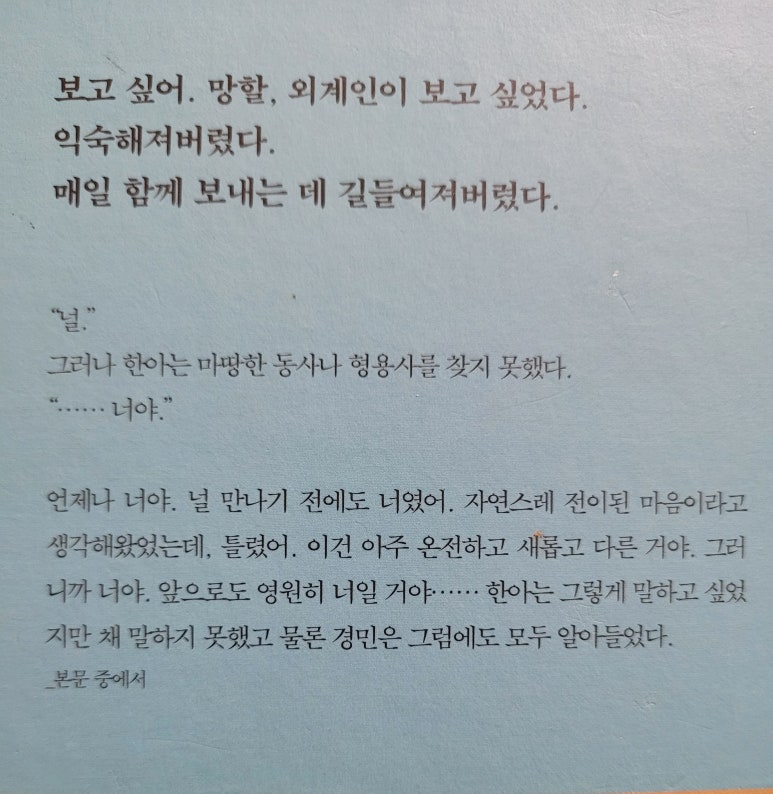 보고 싶어. 망할, 외계인이 보고 싶었다.
익숙해져버렸다.
매일 함께 보내는 데 길들여져버렸다.
“널.”
그러나 한아는 마땅한 동사나 형용사를 찾지 못했다.
“…… 너야.”
언제나 너야. 널 만나기 전에도 너였어. 자연스레 전이된 마음이라고
생각해왔었는데, 틀렸어. 이건 아주 온전하고 새롭고 다른 거야. 그러
니까 너야. 앞으로도 영원히 너일 거야…… 한아는 그렇게 말하고 싶었
지만 채 말하지 못했고 물론 경민은 그럼에도 모두 알아들었다.
_본문 중에서